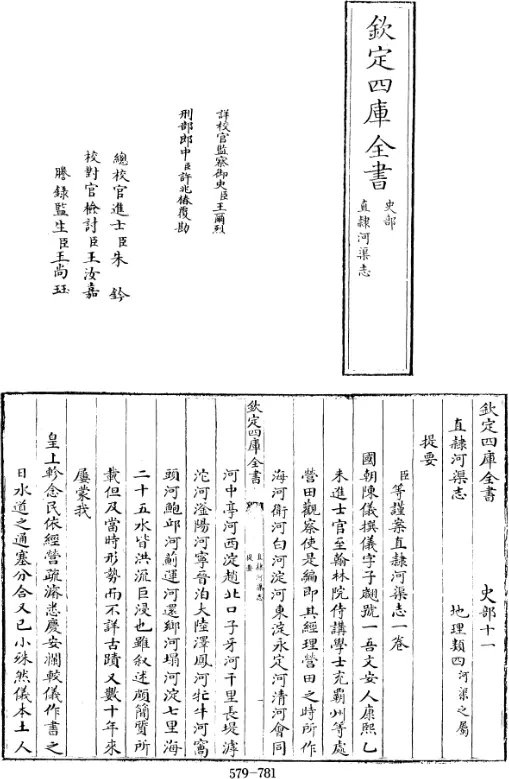 欽定四庫全書
史部
直隷河渠志
詳校官監察御史臣王爾烈
刑部郎中臣許兆椿覆勘
總校官進士臣朱鈐
校對官檢討臣王汝嘉
謄錄監生臣王尚珏
欽定四庫全書 史部十一
直隷河渠志 地理類四河渠之屬
提要
臣等謹案直隷河渠志一卷
國朝陳儀撰儀字子翽號一吾文安人康熙乙
未進士官至翰林院侍講學士充霸州等處
營田觀察使是編即其經理營田之時所作
海河衛河白河淀河東淀永定河清河會同
欽定四庫全書
直隷河渠志
提要
河中亭河西淀趙北口子牙河千里長堤滹
沱河滏陽河寧晉泊大陸澤鳳河牤牛河窩
頭河鮑邱河薊運河還鄉河塌河淀七里海
二十五水皆洪流巨浸也雖叙述頗簡質所
載但及當時形勢而不詳古蹟又數十年來
屢蒙我
皇上軫念民依經營疏濬悉慶安瀾較儀作書之
日水道之通塞分合又已小殊然儀本土人
579-781